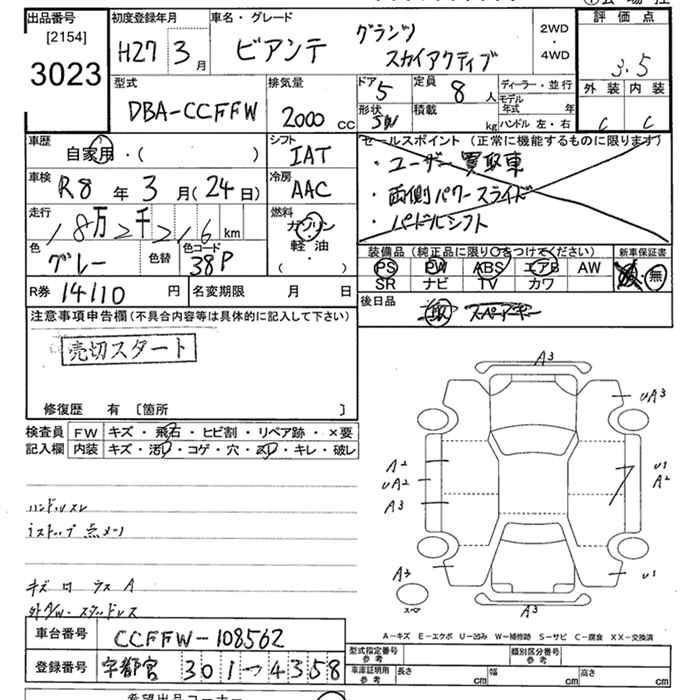 出品番号
[2154]
3023
初度登録年月
H27 3月
車名・グレード
ビアンテ
グランツ
スカイアクティブ
2WD
・
4WD
評価点
3.5
外装 内装
C C
型式
DBA-CCFFW
排気量
2000 CC
ドア 5
形状 SW
定員 8 人
積載 kg
ディーラー・並行
モデル年式 年
ハンドル 左・右
車歴
自家用・( )
シフト
IAT
車検 R8年 3月(24日)
冷房
AAC
走行
18万2千216 km
燃料
ガソリン
軽油
( )
色
グレー
色替
色コード
38P
R券 14110 円
名変期限 月 日
セールスポイント (正常に機能するものに限ります)
・ユーザー買取車
・両側パワースライド
・パドルシフト
装備品 (純正品に限り○をつけてください)
PS PW ABS エアB AW
SR ナビ TV カワ
新車保証書
無
後日品
スペアキー
注意事項申告欄(不具合内容等は具体的に記入して下さい)
売切スタート
修復歴 有 〔箇所 〕
検査員 FW キズ・飛石・ヒビ割・リペア跡・×要
記入欄 内装 キズ・汚・コゲ・穴・・キレ・破レ
ハンドルスレ
iストップ 点メーノ
キズ A
外A/W・スタッドレス
A3
UA3
A2
UA2
A3
U1
A2
A3
スペ
A3
U1
A−キズ E−エクボ U−凹み W−補修跡 S−サビ C−腐食 XX−交換済
車台番号 CCFFW-108562
登録番号 宇都宮 301 つ 4358
型式指定番号 参考
類別区分番号 参考
車庫証明用 参考
長さ cm 幅 cm 高さ cm
希望出品コーナー